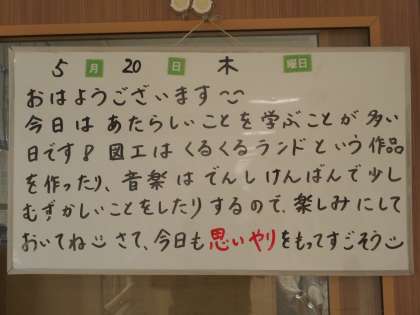 5月20日 木 曜日
おはようございます
今日はあたらしいことを学ぶことが多い
日です！図工はくるくるランドという作品
を作ったり、音楽はでんしけんばんで少し
むずかしいことをしたりするので、楽しみにして
おいてね さて、今日も思いやりをもってすごそう